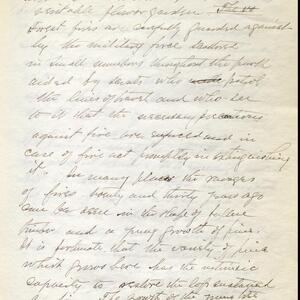 veritable flower garden.
Forest fires are carefully guarded against
by the military force stationed
in small numbers throughout the park
aided by scouts who patrol
the lines of travel and who see
to it that the necessary precautions
against fire are enforced and in
case of fire act promptly in extinguishing
it. In many places the ravages
of fires twenty and thirty years ago
can be seen in the shape of fallen
timber and a young growth of pine.
It is fortunate that the variety of pine
which grows here has the intrinsic
capacity to restore the loss sustained
The growth of the